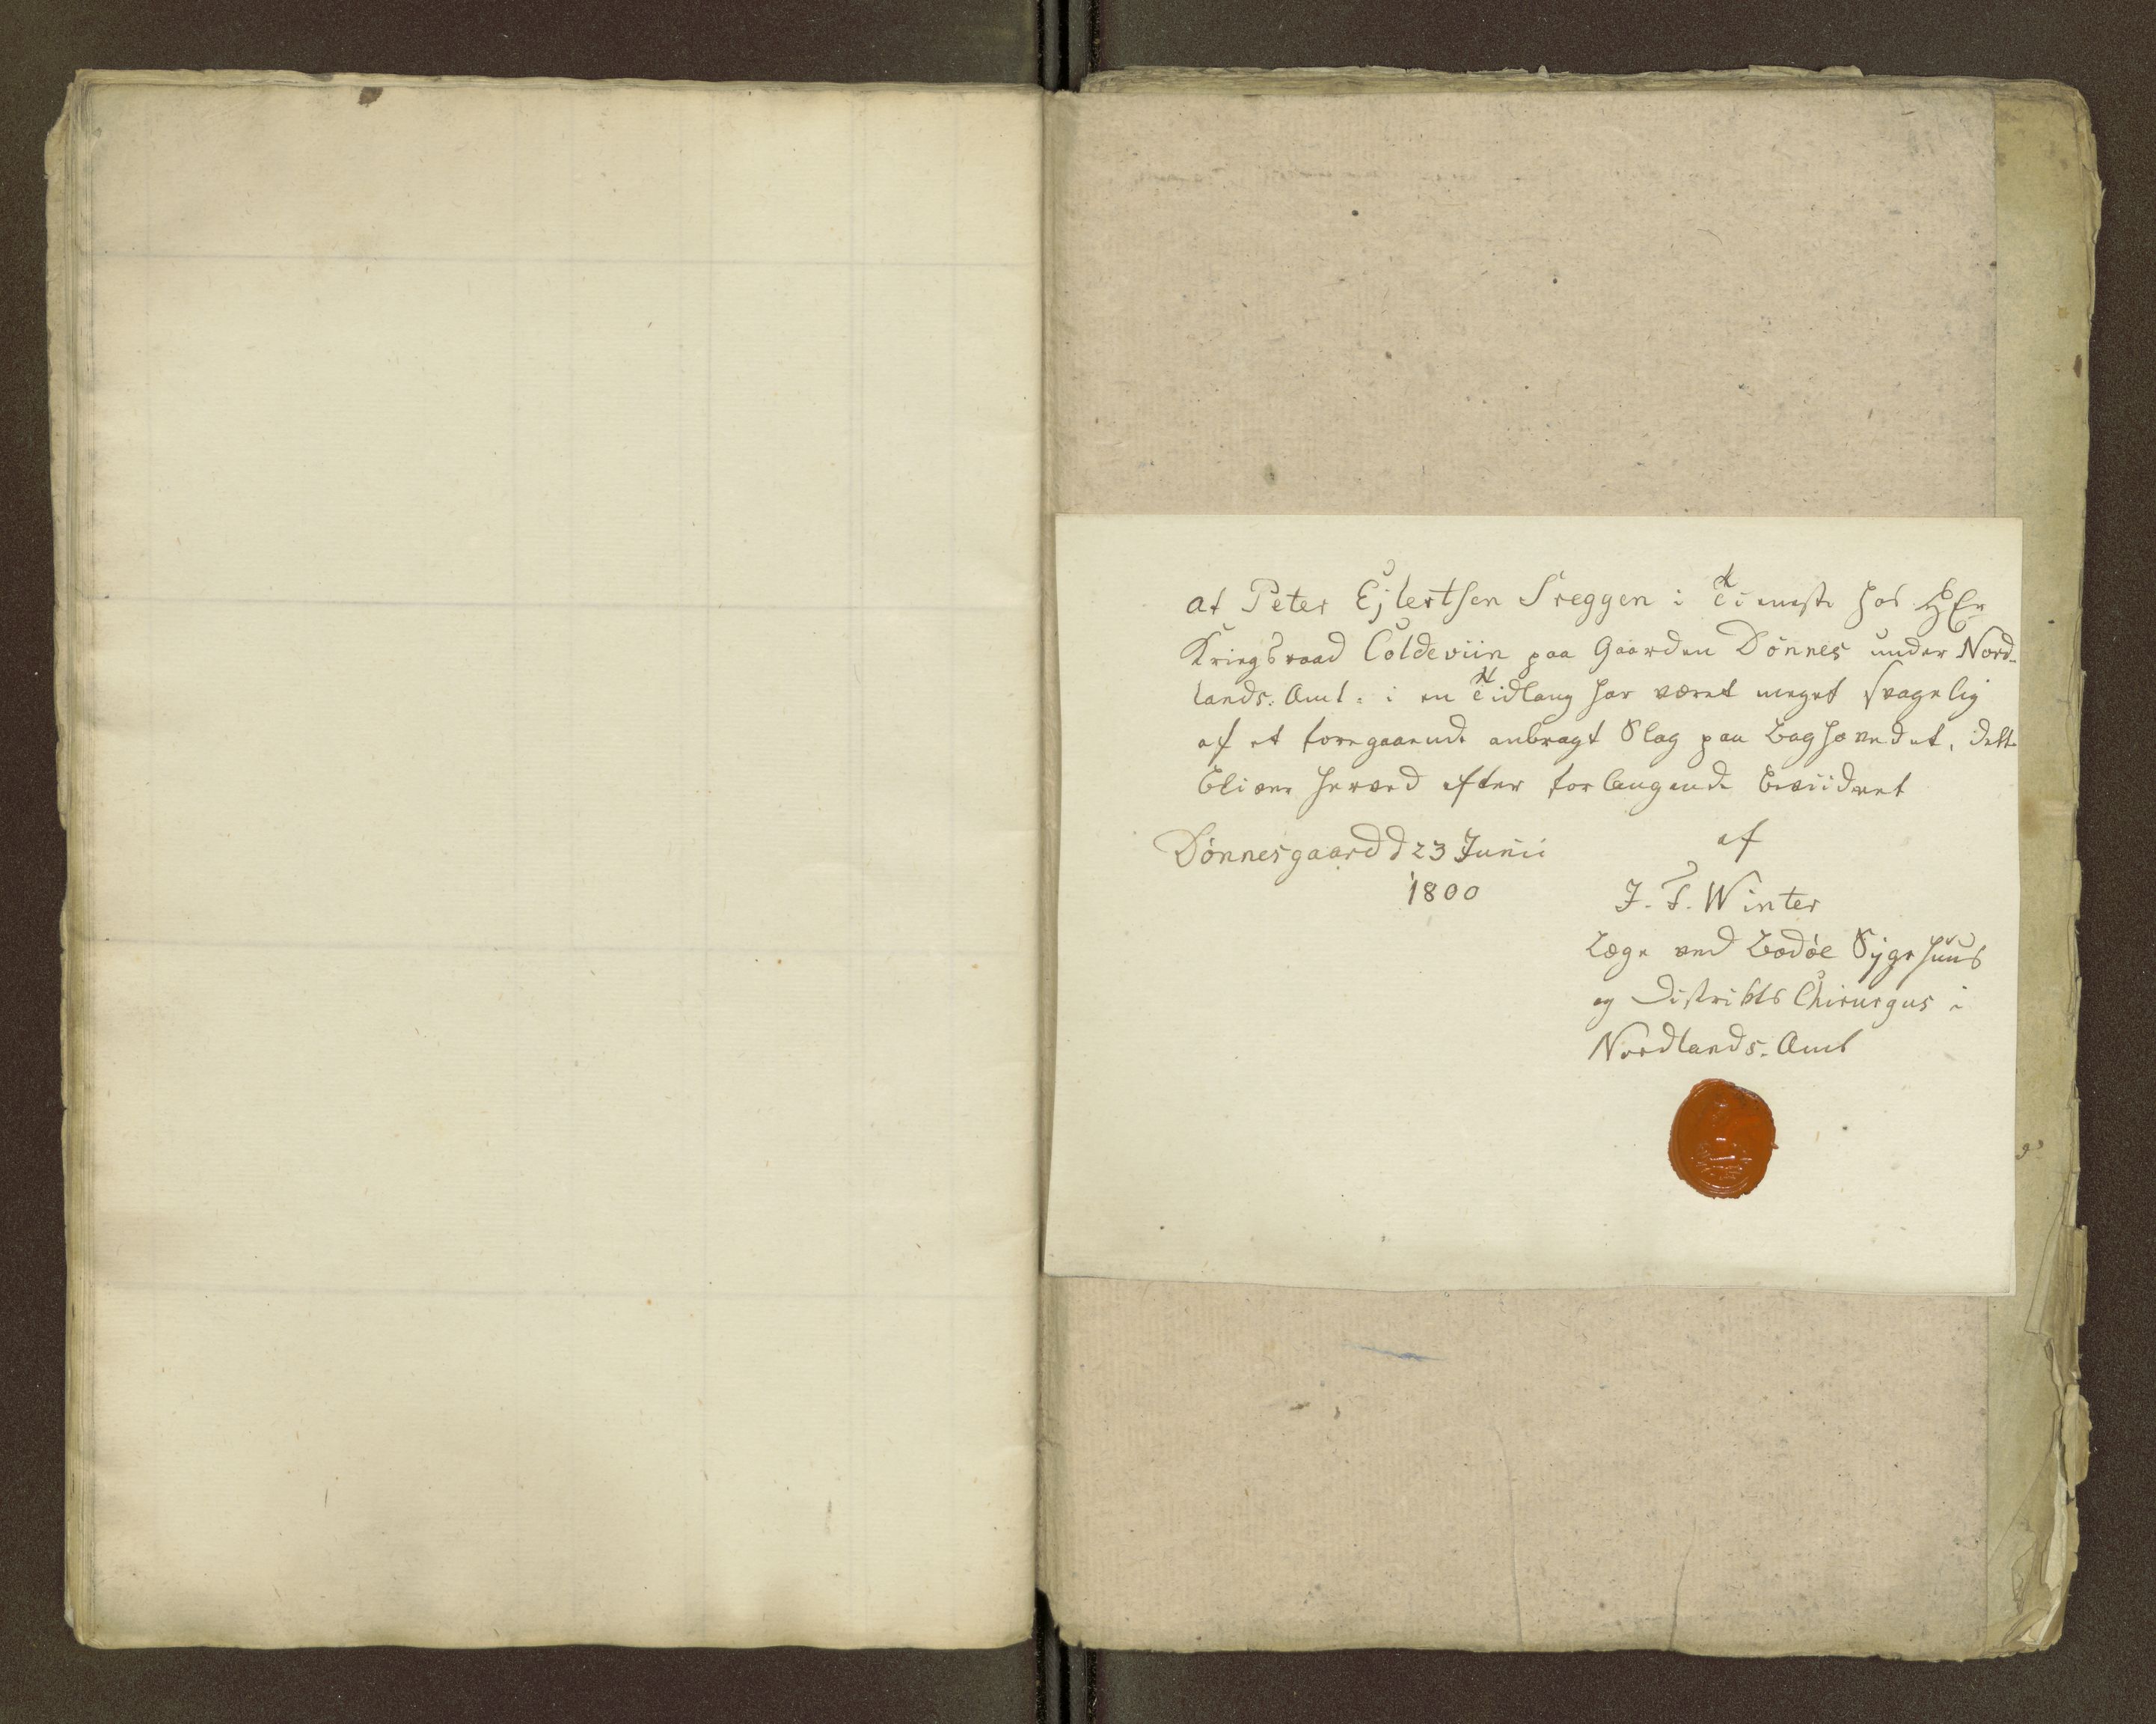 at Peter Ejlertsen Sreggen i Tieneste hos HEr
Kriegsraad Coldeviin paa Gaarden Dönnes under Nord-
lands. Amt. i en Tidlang har været meget svagelig
af et foregaaende anbragt Slag paa Baghovedet, dette
bliver herved efter forlangende beviidnet
Dönnesgaard d 23 Junii
1800
af
J. F. Winter
Læge ved Bodöe Sygehuus
og Distrikts Chirurgus i
Nordlands. Amt